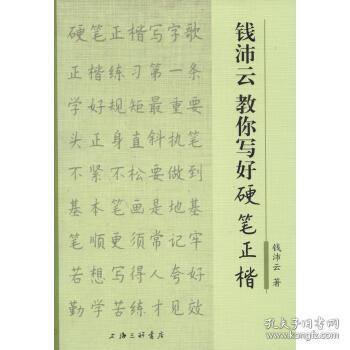 硬笔正楷写字歌
正楷练习第一条
学好规矩最重要
头正身直斜执笔
不紧不松要做到
基本笔画是地基
笔顺更须常记牢
若想写得人人夸好
勤学苦练才见效
钱沛云 教你写好硬笔正楷
钱沛云 著
上海三联书店
孔夫子旧书网